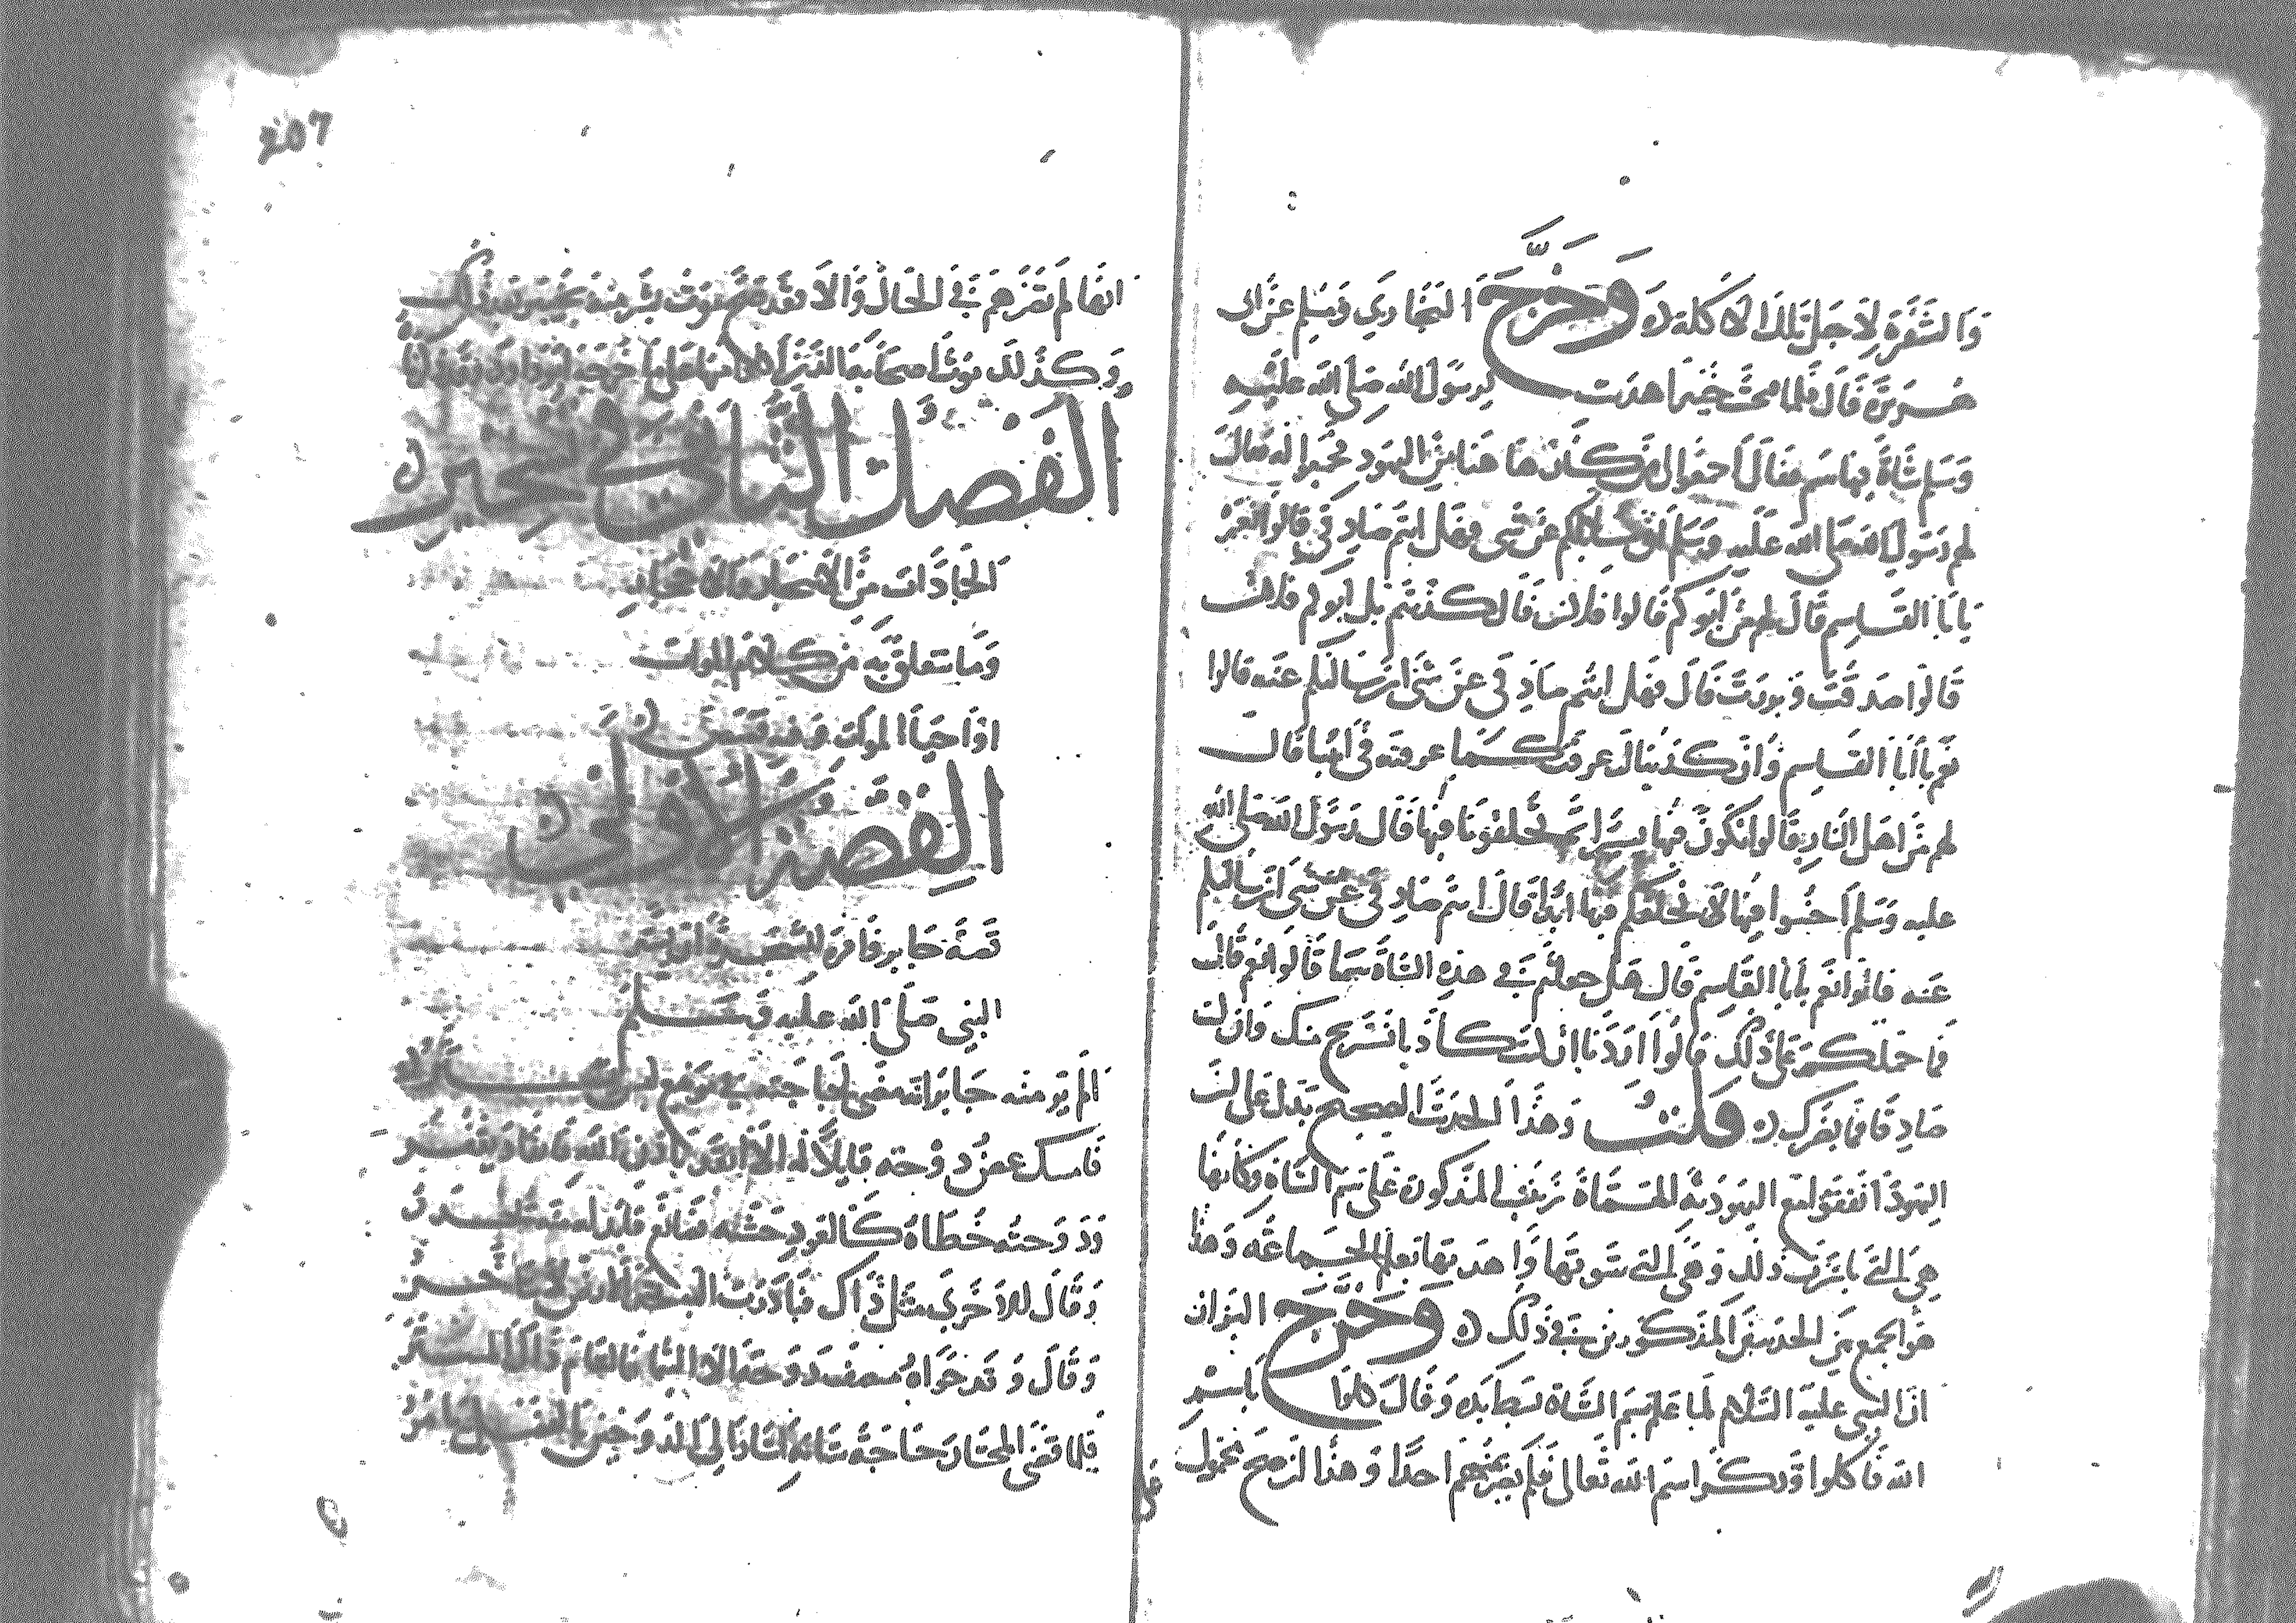 والشفرة لاجل تلك الاكلة ه وخرج البخاري ومسلم عن ابى
هريرة قال فلما فتحت خيبر اهديت لرسول الله صلى الله عليه
وسلم شاة فيها سم فقال اجمعوا لى من كان ها هنا من اليهود فجمعوا له فقال
لهم رسول الله صلى الله عليه وسلم انى سائلكم عن شى فهل انتم صادقي قالوا نعم
يا ابا القاسم قال لهم من ابوكم قالوا فلان قال كذبتم بل ابوكم فلان
قالوا صدقت وبررت قال فهل انتم صادقي عن شى ان سالتكم عنه قالوا
نعم يا ابا القاسم وان كذبناك عرفت كما عرفته في ابينا قال
لهم من اهل النار قالوا نكون فيها يسيرا ثم تخلفونا فيها فقال رسول الله صلى الله
عليه وسلم اخسوا فيها لا نخلفكم فيها ابدا قال انتم صادقي عن شى ان سالتكم
عنه قالوا نعم يا ابا القاسم قال هل جعلتم في هذه الشاة سما قالوا نعم قال
فما حملكم على ذلك قالوا اردنا ان كنت كاذبا نستريح منك وان كنت
صادقا فما يضرك ه قلت وهذا الحديث الصحيح يدل على ان
اليهود اتفقوا مع اليهودية المسماة زينب المذكورة على سم الشاة وكانها
هي التي باشرت ذلك وهي التي شوتها واهدتها بعلم الجماعة وهذا
هو الجمع بين الحديثين المذكورين في ذلك ه وخرج البزار
ان النبي عليه السلام لما علم بسم الشاة بسط يده وقال كلوا باسم
الله فاكلوا وذكر اسم الله تعالى فلم يضر منهم احدا وهذا ان صح محمول
على
207
انها لم تضرهم في الحال والا فقد تقدم موت بشر منه بخيبر بعد ذلك
وكذلك موت اصحابه الذين اكلوا منها على ما خرجه ابو داود
الفصل الثاني في تحيره
الجمادات من الاشجار والاحجار
وما يتعلق به من كلام الموات
او احيا الموات وفيه قصص ه
القصة الاولى ه
قصة جابر فامره للشجر
النبي صلى الله عليه وسلم
الم تر منه جابرا انه مضى لحاجته في موضع ليس يستر
فامسك عصن دوحته قايلا له الا انقد باذن الله فانقاد
ودوحته خطاه كالعود خشه صانع
وقال للاخرى مثل ذاك فبادرت اليه
وقال وقد
فلما قضى المختار حاجة شانه اشار الى الدوحتين بالفصل يامر